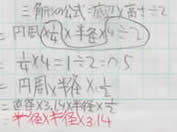 三角形の公式:底辺×高さ÷2
= 円周×¼×半径×4÷2
¼×4=1÷2=0.5
= 円周×半径×½
= 直径×3.14×半径×½
= 半径×半径×3.14